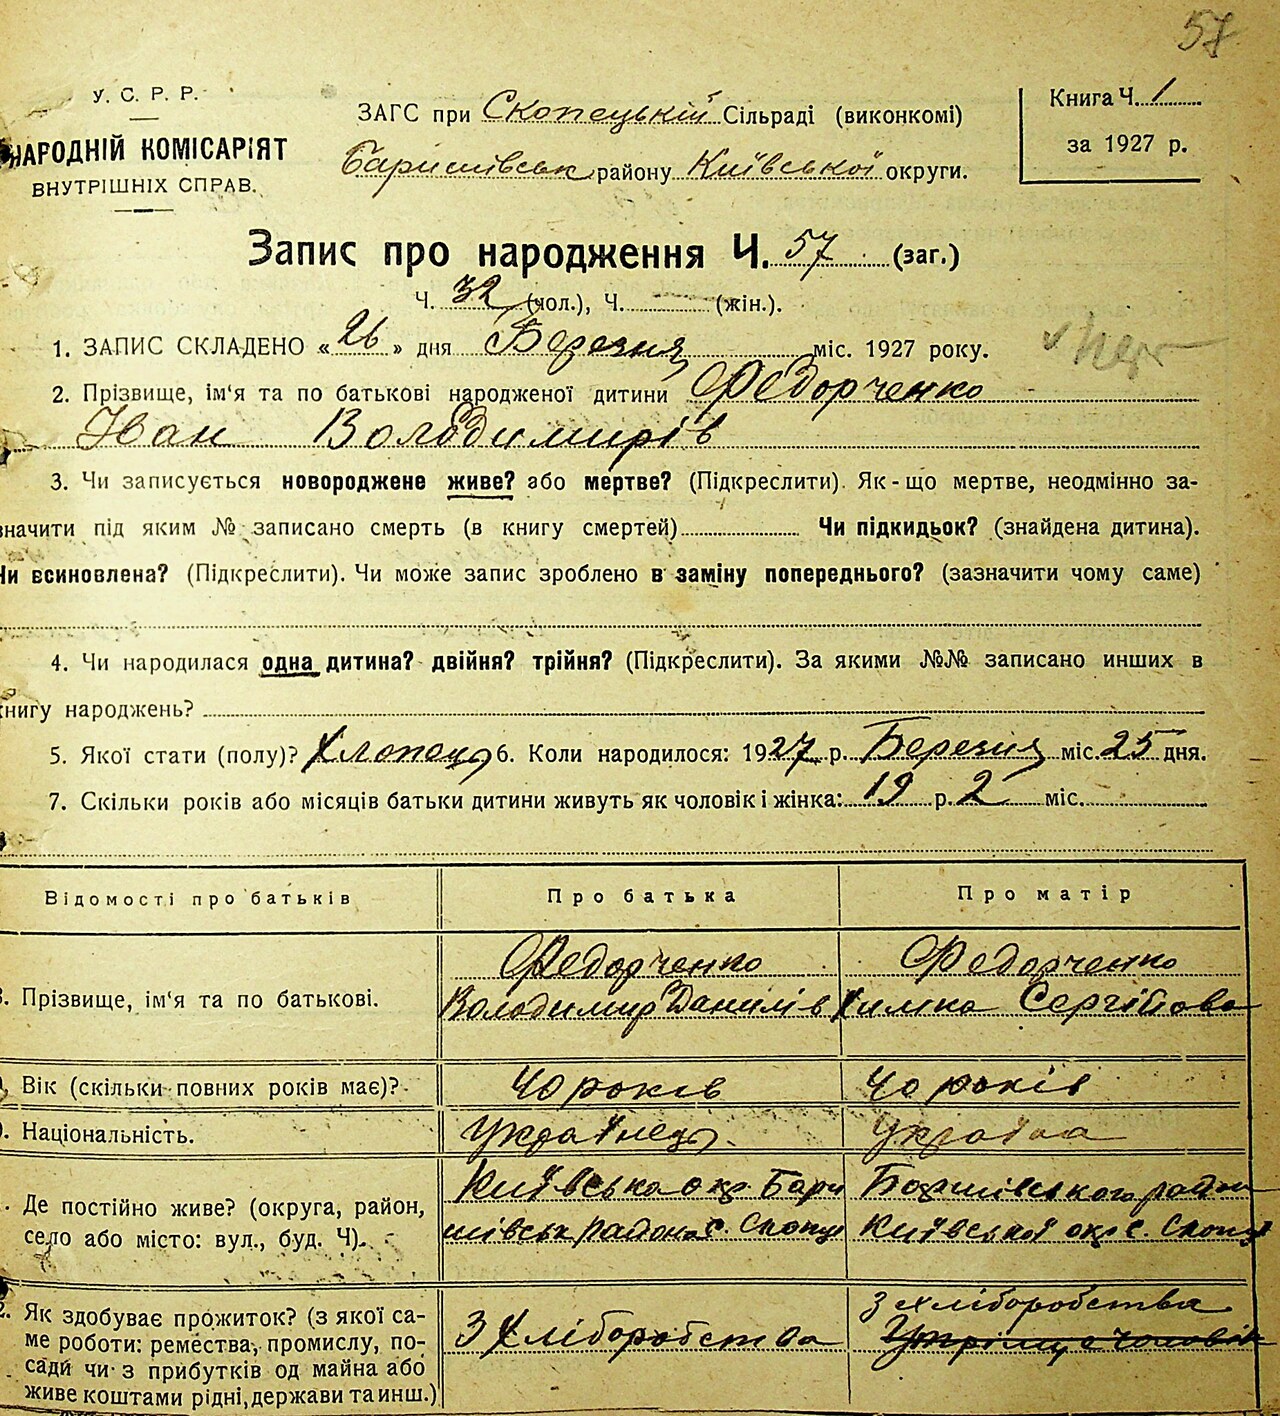 57
У. С. Р. Р.
НАРОДНІЙ КОМІСАРІЯТ
ВНУТРІШНІХ СПРАВ.
ЗАГС при Скопецькій Сільраді (виконкомі)
Баришівськ району Київської округи.
Книга Ч. 1
за 1927 р.
Запис про народження Ч. 57 (заг.)
Ч. 32 (чол.), Ч. (жін.).
1. ЗАПИС СКЛАДЕНО «26» дня Березня міс. 1927 року.
2. Прізвище, ім'я та по батькові народженої дитини Федорченко
Іван Володимирів
3. Чи записується новороджене живе? або мертве? (Підкреслити). Як-що мертве, неодмінно за-
значити під яким № записано смерть (в книгу смертей) Чи підкидьок? (знайдена дитина).
Чи всиновлена? (Підкреслити). Чи може запис зроблено в заміну попереднього? (зазначити чому саме)
4. Чи народилася одна дитина? двійня? трійня? (Підкреслити). За якими №№ записано инших в
книгу народжень?
5. Якої стати (полу)? Хлопець 6. Коли народилося: 1927 р. Березня міс. 25 дня.
7. Скільки років або місяців батьки дитини живуть як чоловік і жінка: 19 р. 2 міс.
Відомості про батьків Про батька Про матір
Федорченко Федорченко
8. Прізвище, ім'я та по батькові. Володимир Данилів Химка Сергійова
Вік (скільки повних років має)? 40 років 40 років
Національність. Українець Україна
Київська окр. Бари Баришівського район
Де постійно живе? (округа, район,
село або місто: вул., буд. Ч). шівськ район с. Скопці Київської окр с. Скопці
Як здобуває прожиток? (з якої са- З хліборобства
ме роботи: ремества, промислу, по- З Хліборобства
сади чи з прибутків од майна або
живе коштами рідні, держави та инш.)